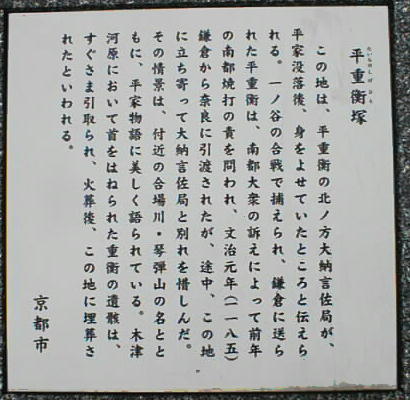 平重衡塚
たいらのしげひら
この地は、平重衡の北ノ方大納言佐局が、
平家没落後、身をよせていたところと伝えら
れる。一ノ谷の合戦で捕えられ、鎌倉に送ら
れた平重衡は、南都大衆の訴えによって前年
の南都焼打の責を問われ、文治元年(一一八五)
鎌倉から奈良に引渡されたが、途中、この地
に立ち寄って大納言佐局と別れを惜しんだ。
その情景は、付近の合場川・琴弾山の名とと
もに、平家物語に美しく語られている。木津
河原において首をはねられた重衡の遺骸は、
すぐさま引取られ、火葬後、この地に埋葬さ
れたといわれる。
京都市